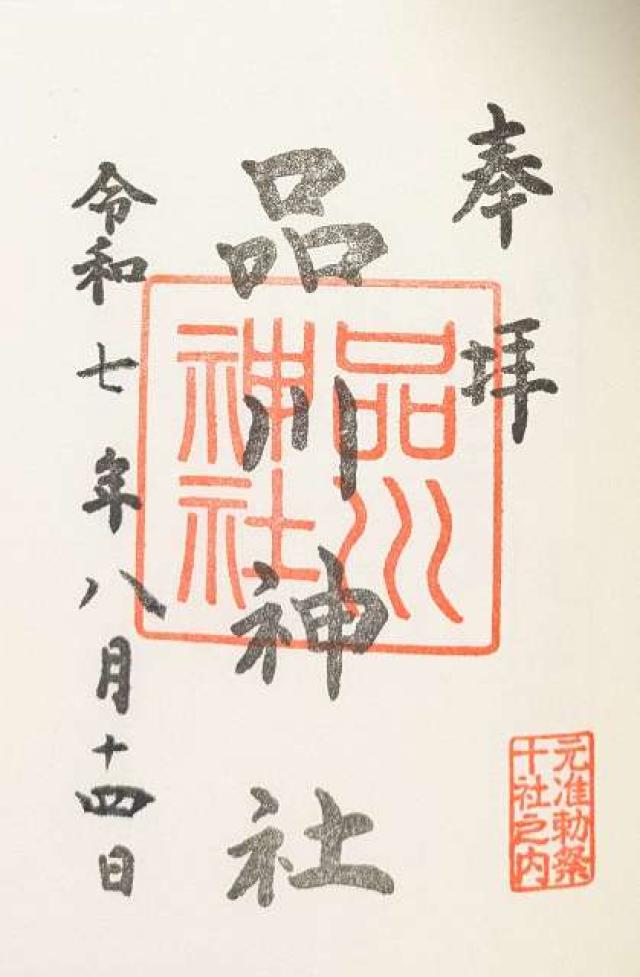 奉拝
品川神社
令和七年八月十四日
品川
神社
元准勅祭
十社之内